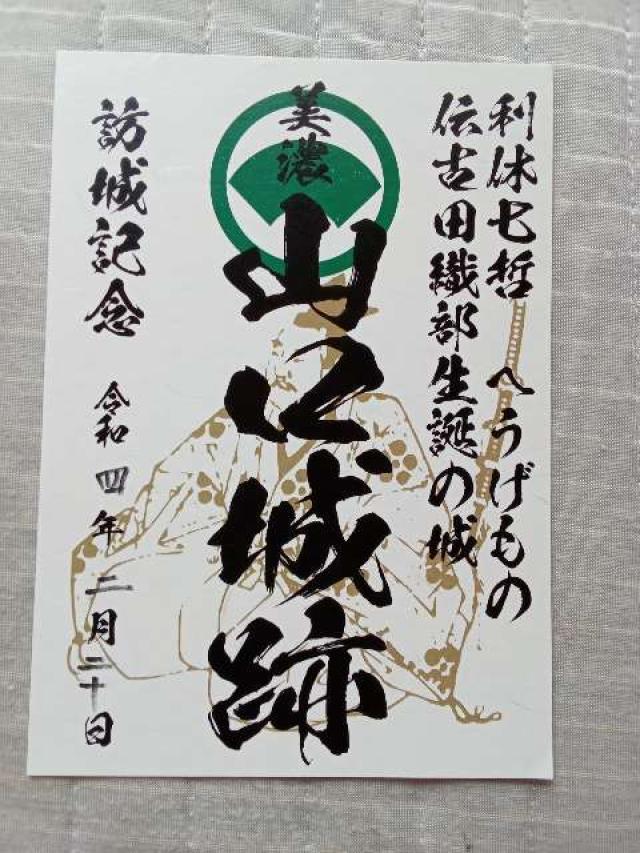 利休七哲 へうげもの
伝古田織部生誕の城
美濃
山口城跡
訪城記念
令和四年二月二十日